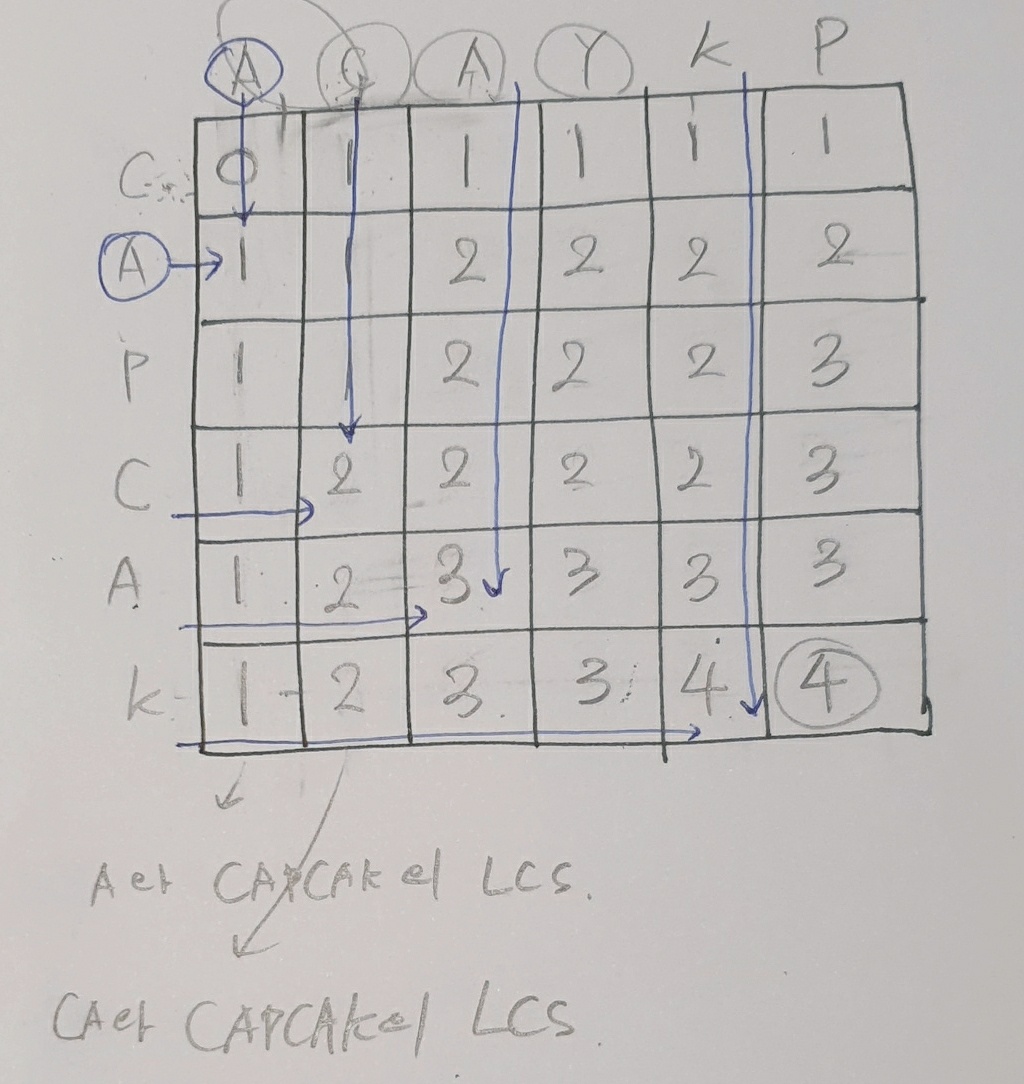 A C A Y K P
C 0 1 1 1 1 1
A 1 1 2 2 2 2
P 1 1 2 2 2 3
C 1 2 2 2 2 3
A 1 2 3 3 3 3
K 1 2 3 3 4 4
A와 CAPCAK의 LCS.
CA와 CAPCAK의 LCS.